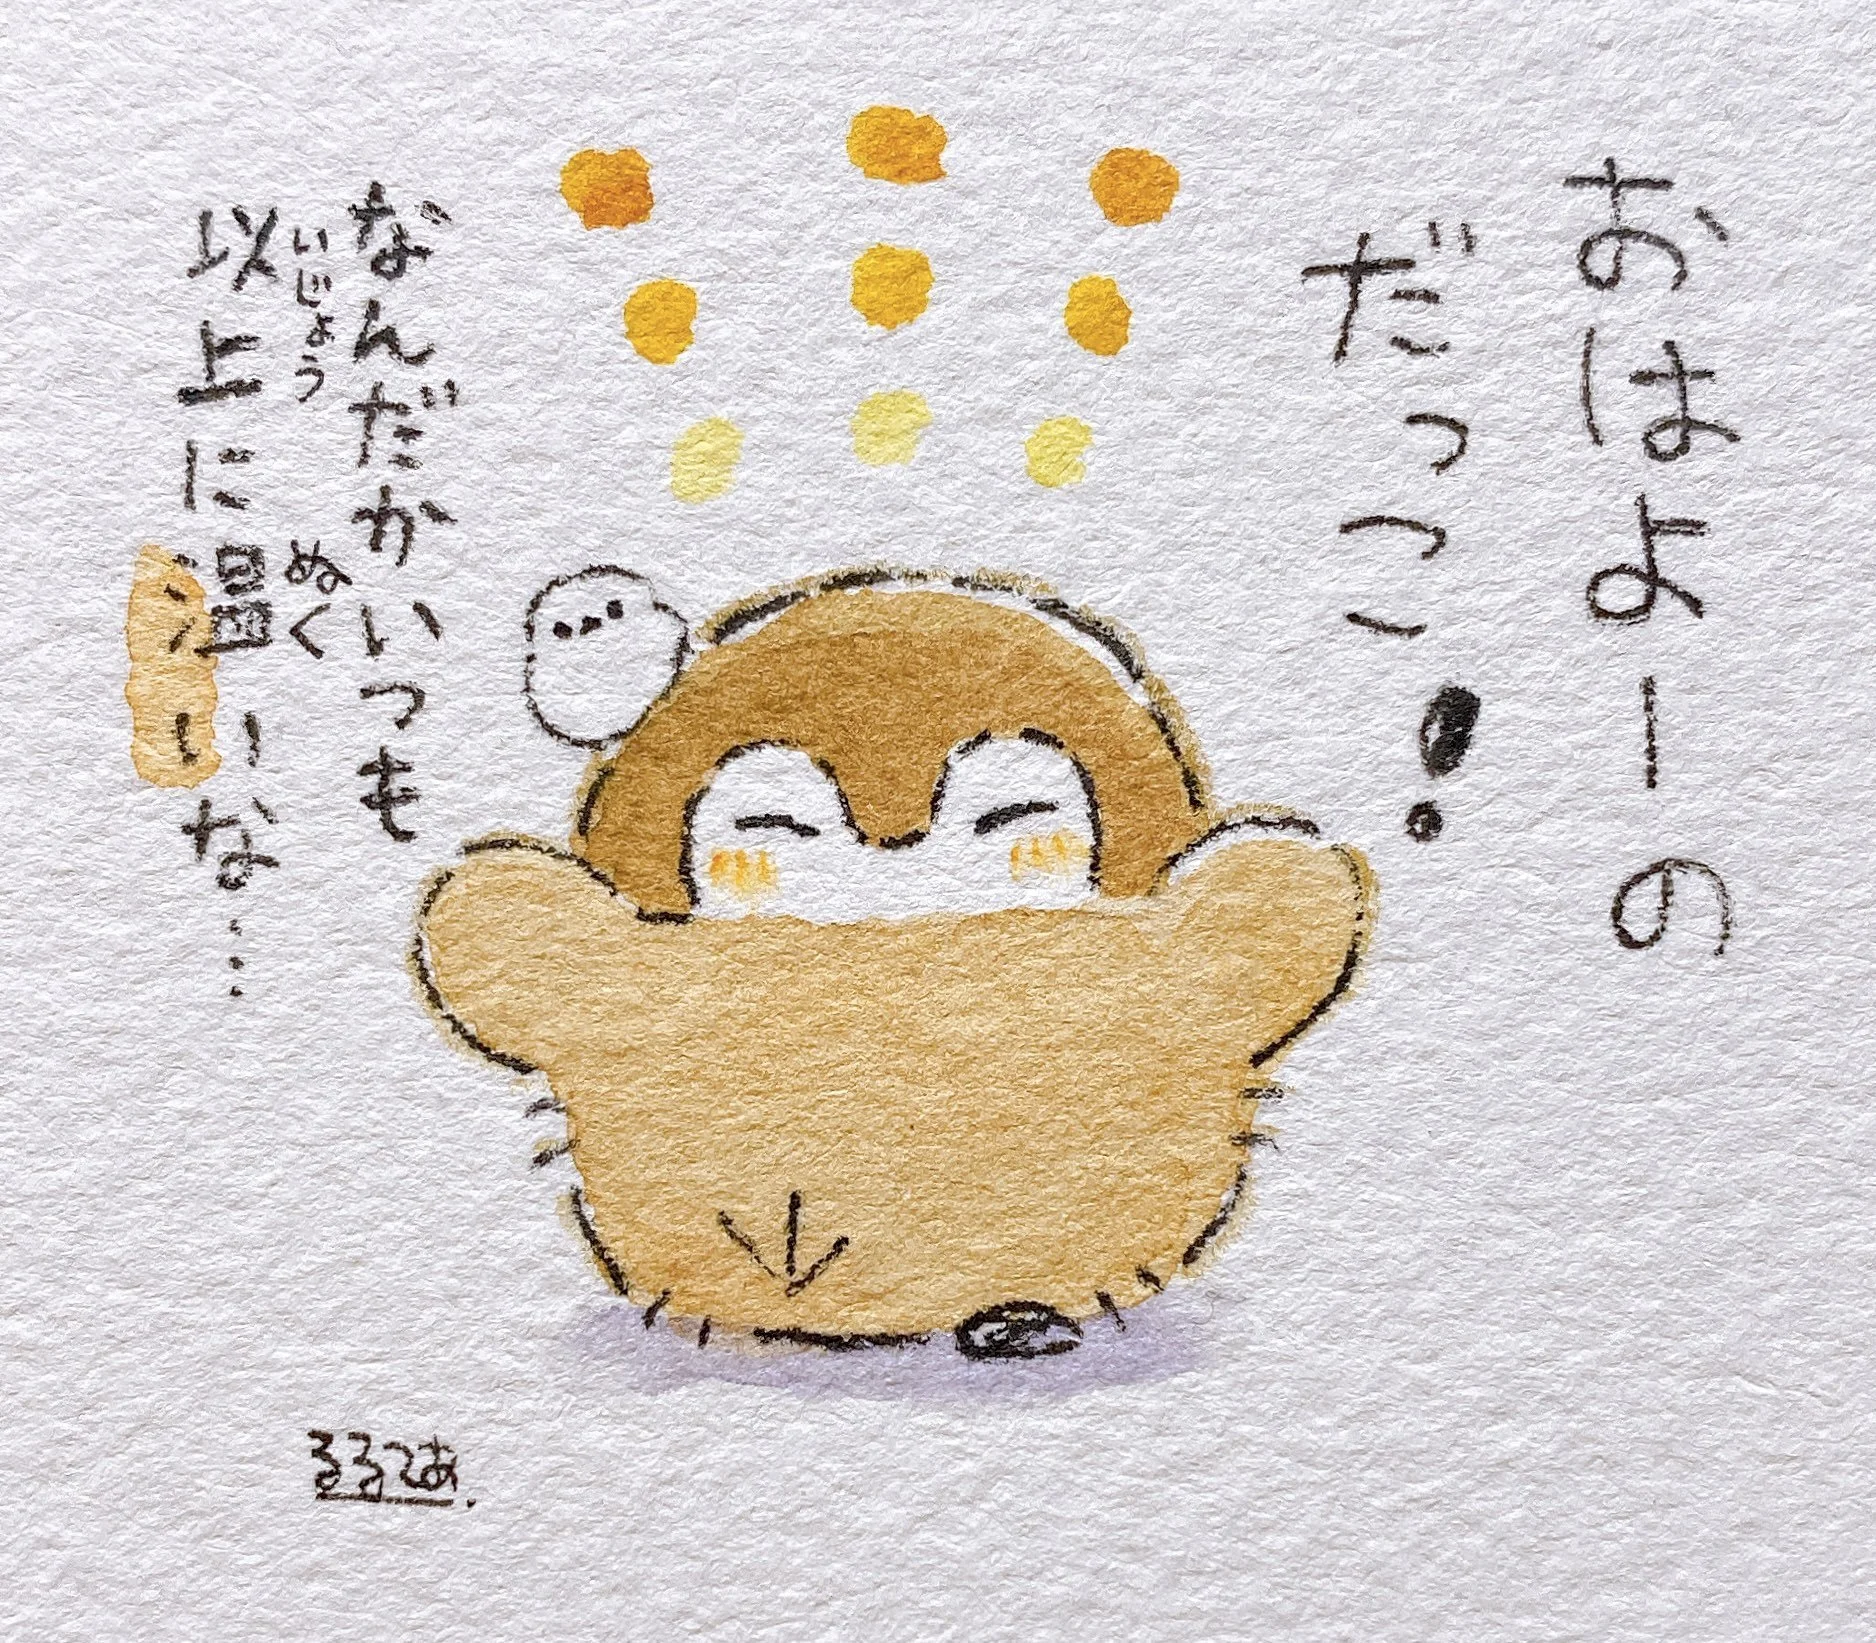 おはよーの
だっこ!
なんだかいつも
以上に温いな…
いじょう
ぬく
るるてあ.